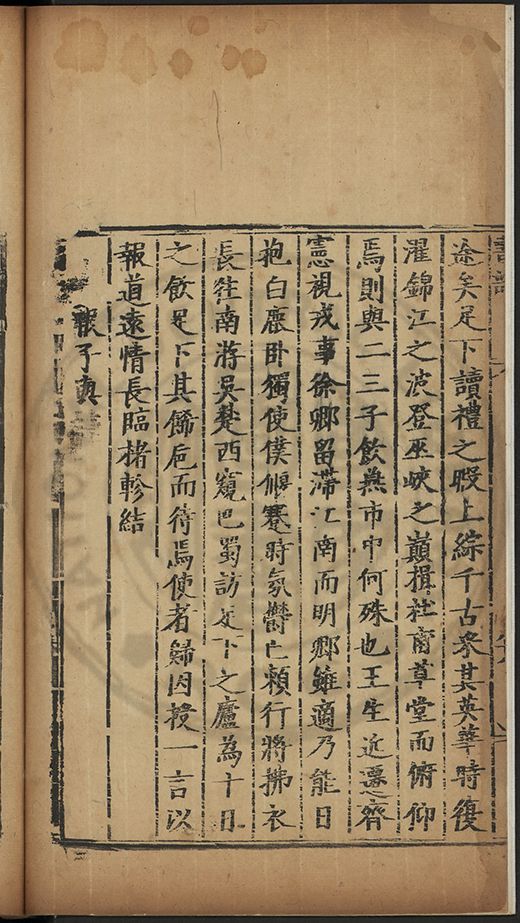 途矣足下讀禮之暇上綜千古采其英華時復
濯錦江之波登巫峽之巔揖杜甫草堂而俯仰
焉則與二三子飲燕市中何殊也王生近還齊
憲視戎事徐卿留滯江南而明卿雖適乃能日
抱白鹿卧獨使僕偃蹇時氛鬱亡賴行將拂衣
長往南將吳楚西窺巴蜀訪足下之廬為十日
之飲足下其餙巵而待焉使者歸因授一言以
報道遠情長臨楮軫結
報子與